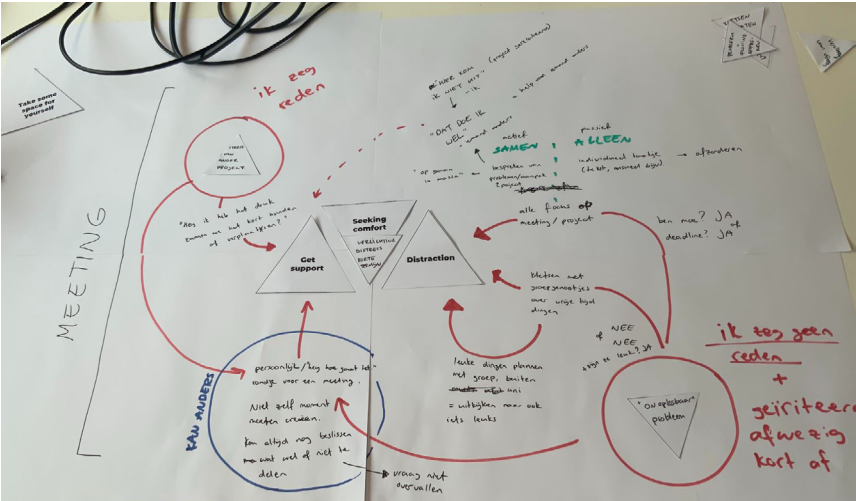 Take some
space for
yourself
MEETING
ik zeg
reden
STRESS
ANDER
PROJECT
"Hey ik heb het druk
kunnen we het kort houden
of verplaatsen?"
Get
support
Seeking
comfort
VERLICHTING
DISTRESS
KORTE
TERMIJN
Distraction
ik niet
(project gerelateerd)
"DAT DOE IK
WEL"
"iemand anders"
help van iemand anders
actief
SAMEN
passief
ALLEEN
"op gaan
in massa"
bespreken van
problemen/aanpak
project
individueel taakje
→ afzonderen
alle focus op
meeting/project
ben moe? JA
of
deadline? JA
kletsen met
groepsgenootjes
over vrije tijd
dingen
of NEE
NEE
+ zijn ze leuk? JA
leuke dingen plannen
met groep, buiten
uni
= uitkijken naar ook
iets leuks
KAN ANDERS
persoonlijk/hey hoe gaat het
rondje voor een meeting.
Niet zelf moment
moeten creëren.
Kan altijd nog beslissen
wat wel of niet te
delen
→ vraag niet
overvallen
"onoplosbaar"
probleem
ik zeg geen
reden
+
geïriteerd
afwezig
kort af